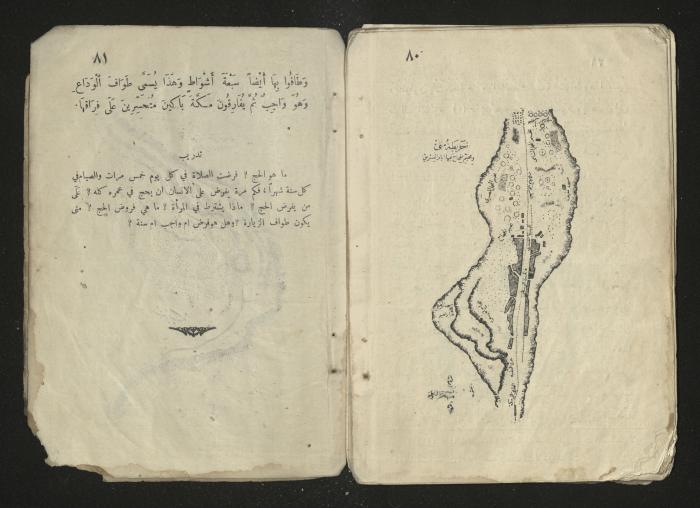 ٨٠
خريطة منى
٨١
وَطَافُوا بِهَا أَيْضاً سَبْعَةَ أَشْوَاطٍ وَهَذَا يُسَمَّى طَوَافَ الْوَدَاعِ
وَهُوَ وَاجِبٌ ثُمَّ يُفَارِقُونَ مَكَّةَ بَاكِينَ مُتَحَسِّرِينَ عَلَى فِرَاقِهَا.
تدريب
ما هو الحج ؟ فرضت الصلاة في كل يوم خمس مرات والصيام في
كل سنة شهراً ، فكم مرة يفرض على الانسان ان يحج في عمره كله ؟ على
من يفرض الحج ؟ ماذا يشترط في المرأة ؟ ما هي فروض الحج ؟ متى
يكون طواف الزيارة ؟ وهل هو فرض ام واجب ام سنة ؟